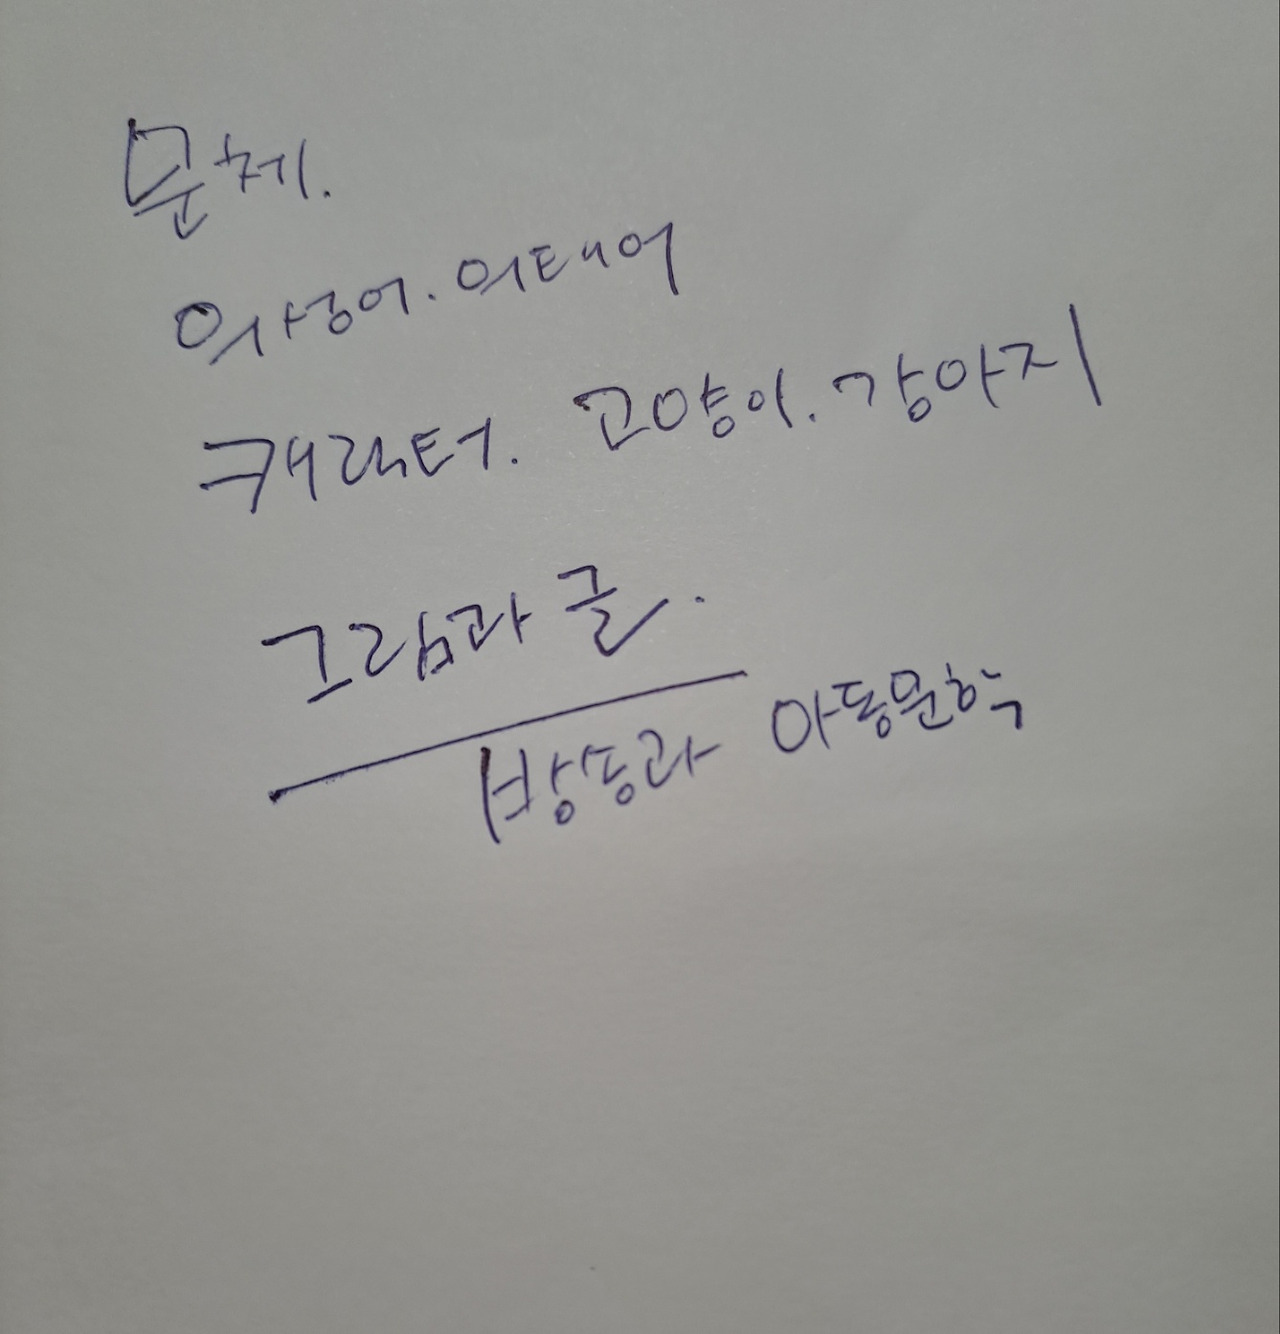 문체.
의성어. 의태어
캐릭터. 고양이. 강아지
그림과 글.
방송과 아동문학